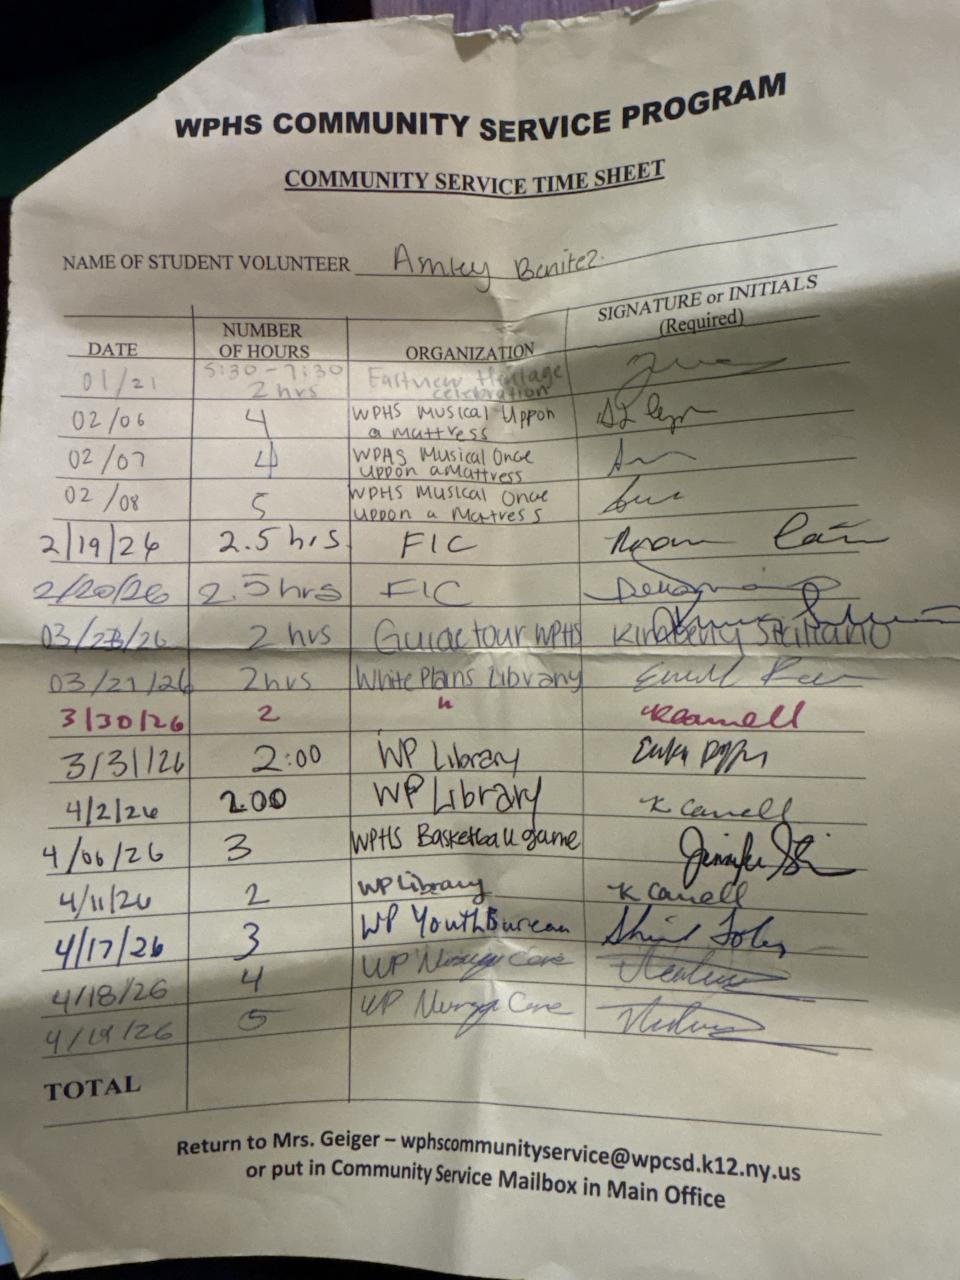 WPHS COMMUNITY SERVICE PROGRAM
COMMUNITY SERVICE TIME SHEET
NAME OF STUDENT VOLUNTEER Benitez
DATE NUMBER OF HOURS ORGANIZATION SIGNATURE or INITIALS (Required)
01/21 5:30-7:30 2 hrs Eastview Heritage celebration
02/06 4 WPHS Musical Uppon a mattress
02/07 4 WPHS Musical Once uppon a Mattress
02/08 5 WPHS Musical Once uppon a Matress
2/19/26 2.5 hrs. FIC
2/20/26 2.5 hrs FIC
2 hrs Guide tour WPHS Kimberly
03/21/26 2hrs White Plains Library
3/30/26 2 "
3/31/26 2:00 WP Library
4/2/26 2:00 WP Library K Canell
4/06/26 3 WPHS Basketball game Jennifer
4/11/26 2 WP Library K Canell
4/17/26 3 WP Youth Bureau
4/18/26 4 WP Care
4/19/26 5 WP Care
TOTAL
Return to Mrs. Geiger – wphscommunityservice@wpcsd.k12.ny.us
or put in Community Service Mailbox in Main Office